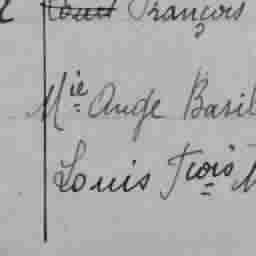 Louis François
Mie Ange Basil
Louis Frois